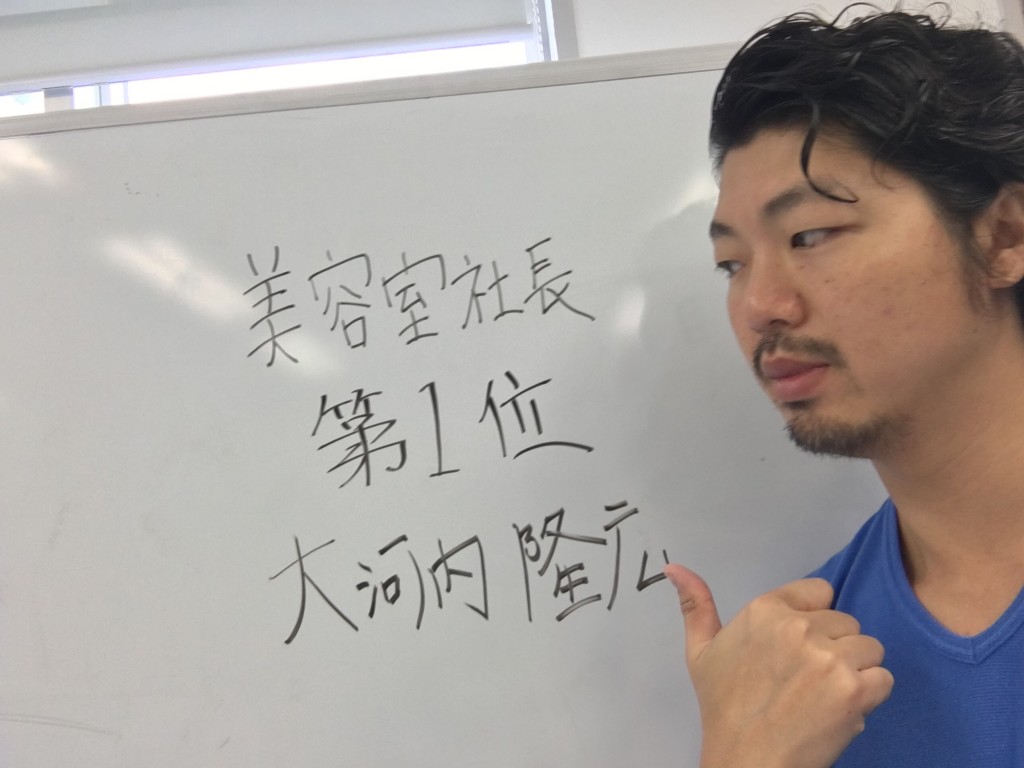 美容室社長
第1位
大河内隆広